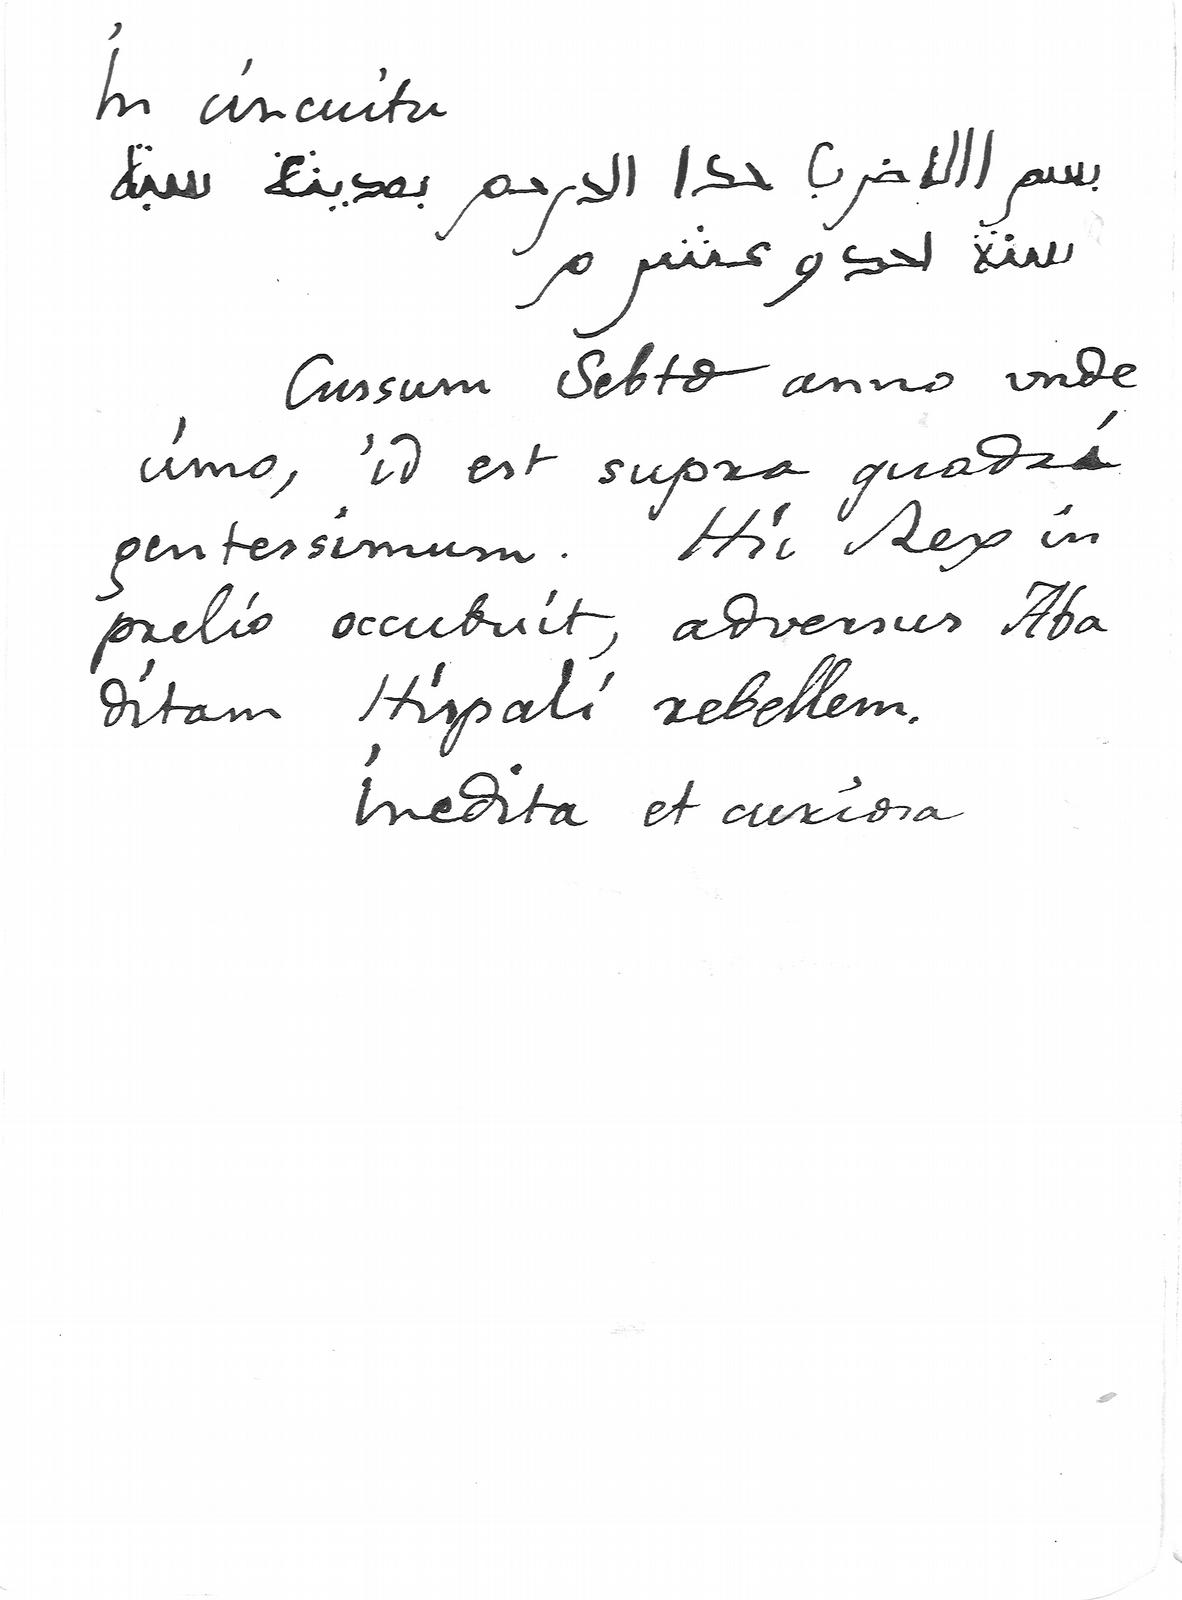 In circuitu
بسم اللاضرب حدا الدرحم بمدينة سبتة
سنة احد و عشر م
Cussum Sebtæ anno unde
cimo, id est supra quadrin
gentessimum. Hic Rex in
prelio occubuit, adversus Aba
ditam Hispali rebellem.
Inedita et curiosa